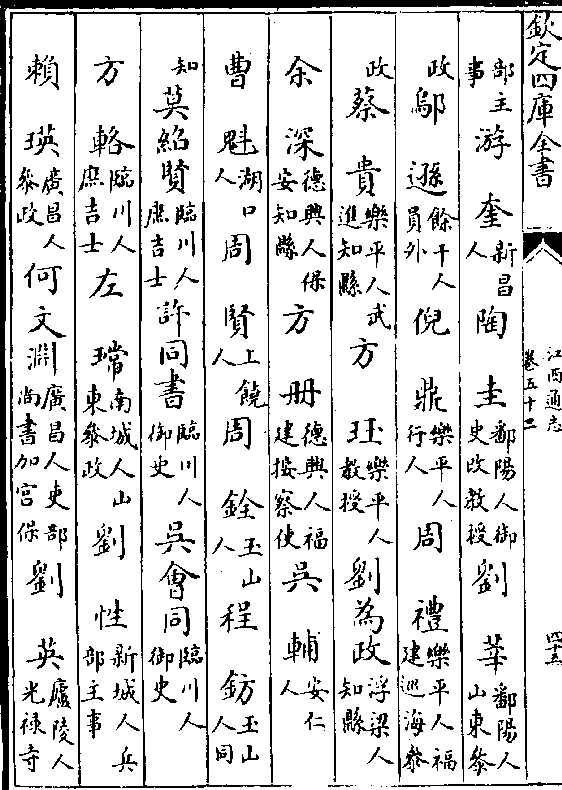 欽定四庫全書
江西通志
卷五十二
四十五
部主事游奎新昌人陶圭鄱陽人御史改教授劉華鄱陽人山東參
政鄔遜餘干人員外倪鼎樂平人行人周禮樂平人福建巡海參
政蔡貴樂平人武進知縣方珏樂平人教授劉為政浮梁人知縣
余深德興人保安知縣方冊德興人福建按察使吳輔安仁人
曹魁湖口人周賢上饒人周銓玉山人程鈁玉山人同
知莫紹賢臨川人庶吉士許同書臨川人御史吳會同臨川人御史
方輅臨川人庶吉士左瑺南城人山東參政劉性新城人兵部主事
賴瑛廣昌人參政何文淵廣昌人吏部尚書加宮保劉英廬陵人光祿寺